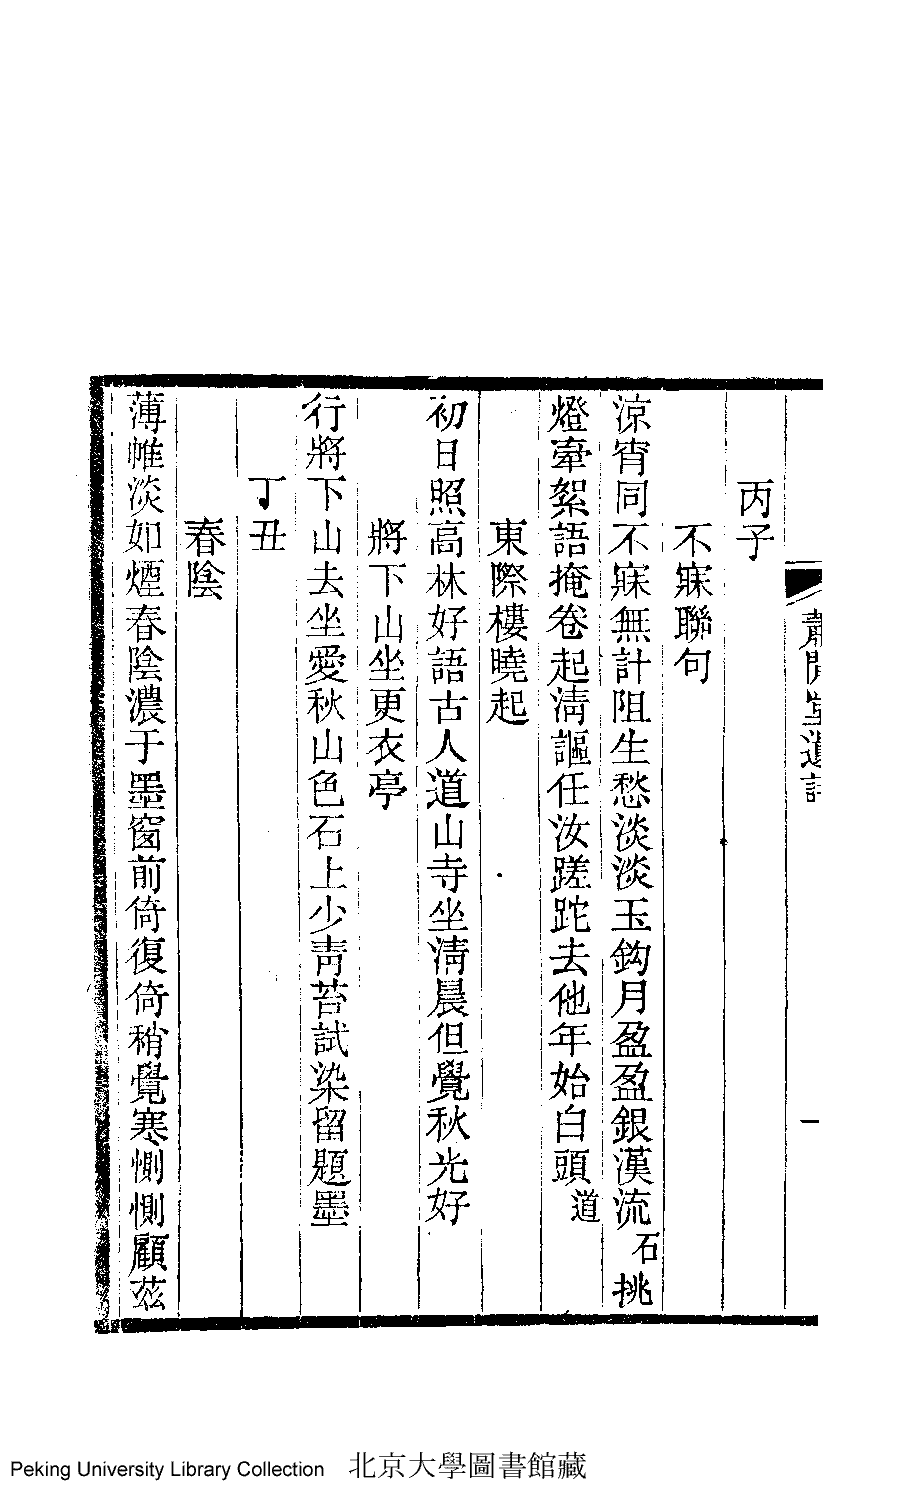 蕭閒堂遺詩
一
丙子
不寐聯句
涼宵同不寐無計阻生愁淡淡玉鈎月盈盈銀漢流石挑
燈牽絮語掩卷起淸謳任汝蹉跎去他年始白頭道
東際樓曉起
初日照高林好語古人道山寺坐淸晨但覺秋光好
將下山坐更衣亭
行將下山去坐愛秋山色石上少靑苔試染留題墨
丁丑
春陰
薄帷淡如煙春陰濃于墨窗前倚復倚稍覺寒惻惻顧茲
Peking University Library Collection 北京大學圖書館藏